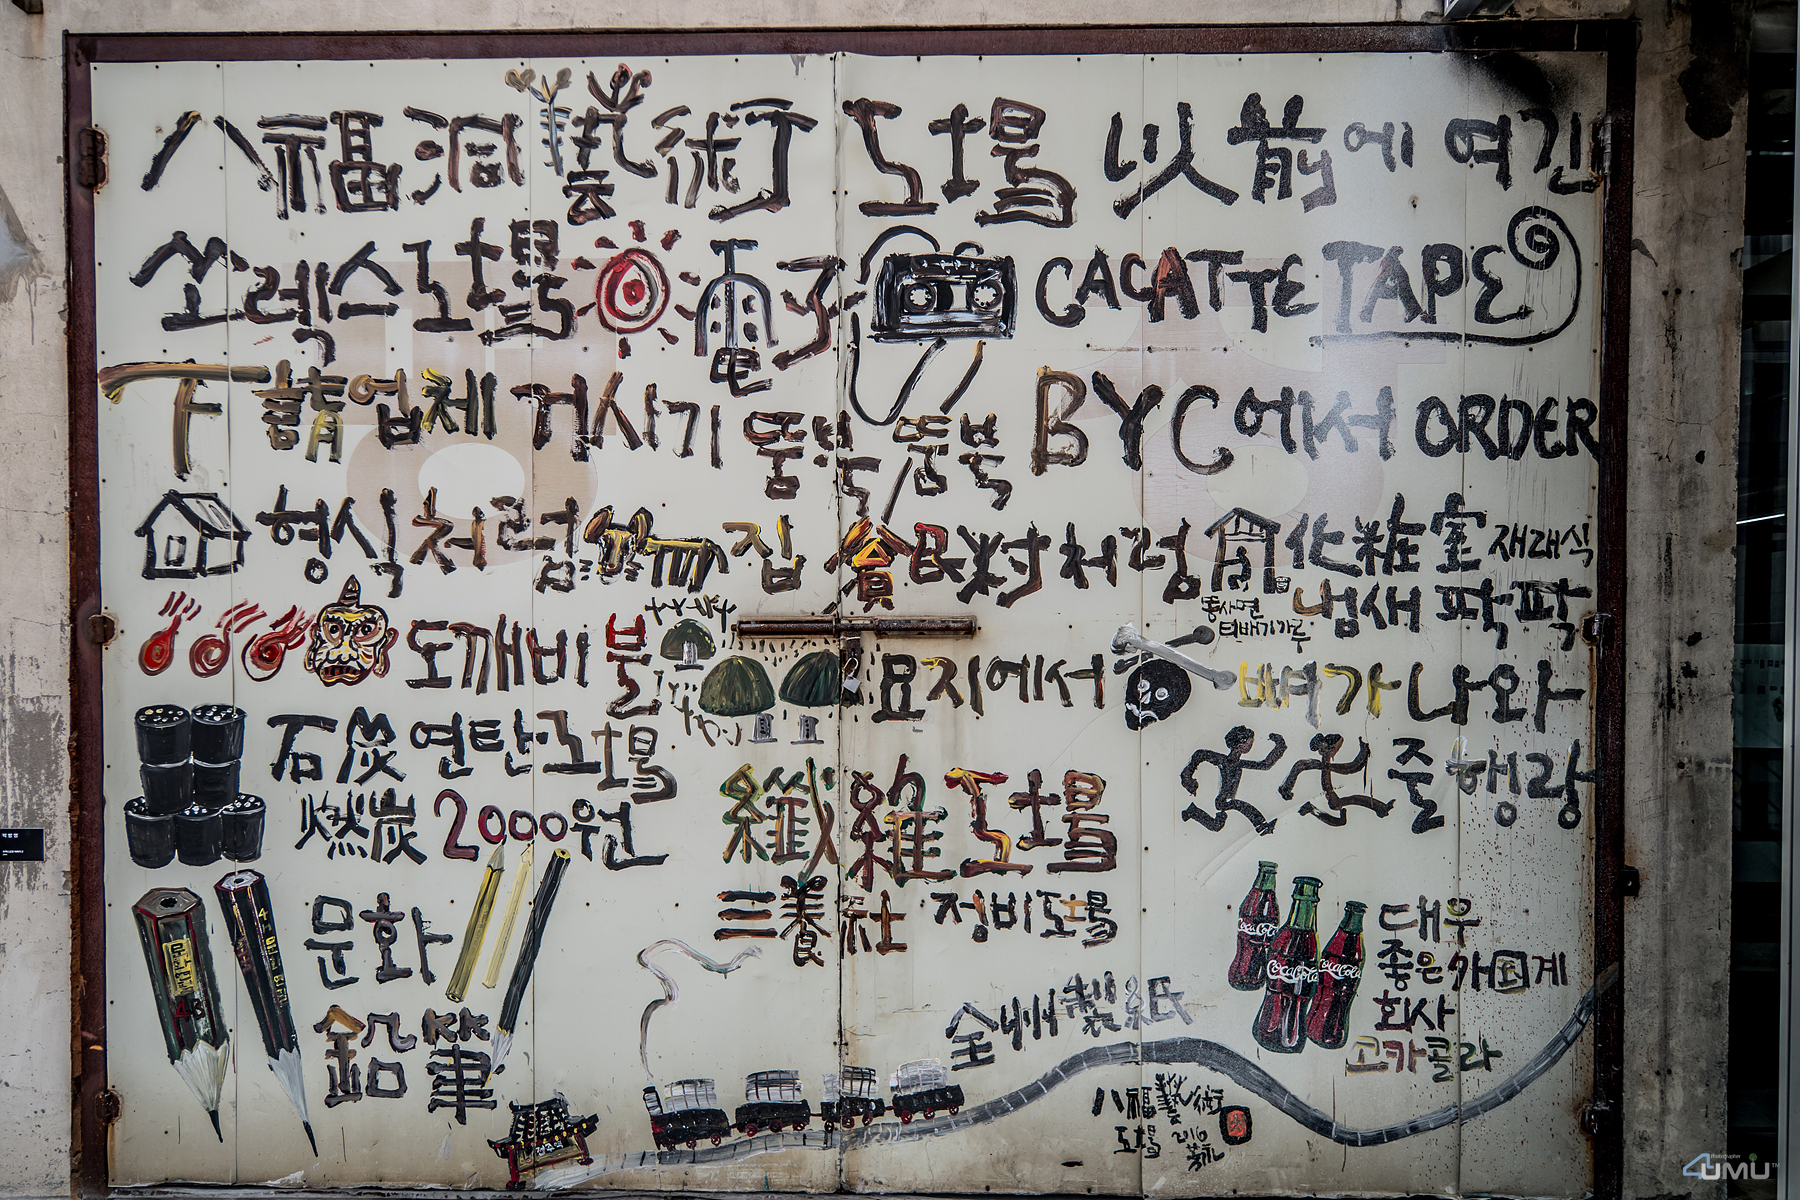 八福洞藝術工場 以前에 여긴
쏘렉스工場 電子 CACATTE TAPE
下請업체 거시기 뚬벅 뚬벅 BYC에서 ORDER
형식처럼 집 貧民村처럼 簡 化粧室 재래식
냄새 팍팍
도깨비 불 묘지에서 뼈가 나와
石炭 연탄工場 줄행랑
燃炭 2000원
纖維工場
三養社 정비工場
문화
鉛筆
대우
좋은 外国계
회사
코카콜라
CocaCola
CocaCola
CocaCola
全州製紙
八福藝術
工場 2016
4UMU